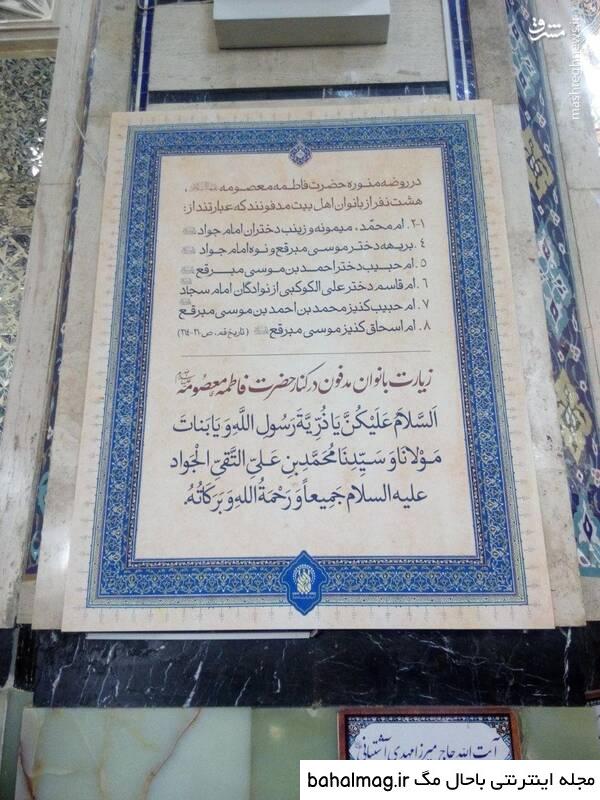 مشرق
mashreghnews.ir
در روضه منوره حضرت فاطمه معصومه ،
هشت نفر از بانوان اهل بیت مدفونند که عبارتند از:
۱-۳. ام محمّد، میمونه و زینب دختران امام جواد
۴. بریهه دختر موسی مبرقع و نوه امام جواد
۵. ام حبیب دختر احمد بن موسی مبرقع
۶. ام قاسم دختر علی الکوکبی از نوادگان امام سجاد
۷. ام حبیب کنیز محمد بن احمد بن موسی مبرقع
۸. ام اسحاق کنیز موسی مبرقع (تاریخ قم، ص
زیارت بانوان مدفون در کنار حضرت فاطمه معصومه
اَلسَّلامُ عَلَیْکُنَّ یا ذُرِّیَّةَ رَسُولِ اللّهِ وَ یا بَناتَ
مَوْلانا وَ سَیِّدِنا مُحَمَّدِ بنِ عَلیِّ التَّقیِّ الجَواد
علیه السلام جَمیعاً وَ رَحْمَةُ اللهِ وَ بَرَکاتُهُ.
آیت الله حاج میرزا مهدی آشتیانی
مجله اینترنتی باحال مگ bahalmag.ir